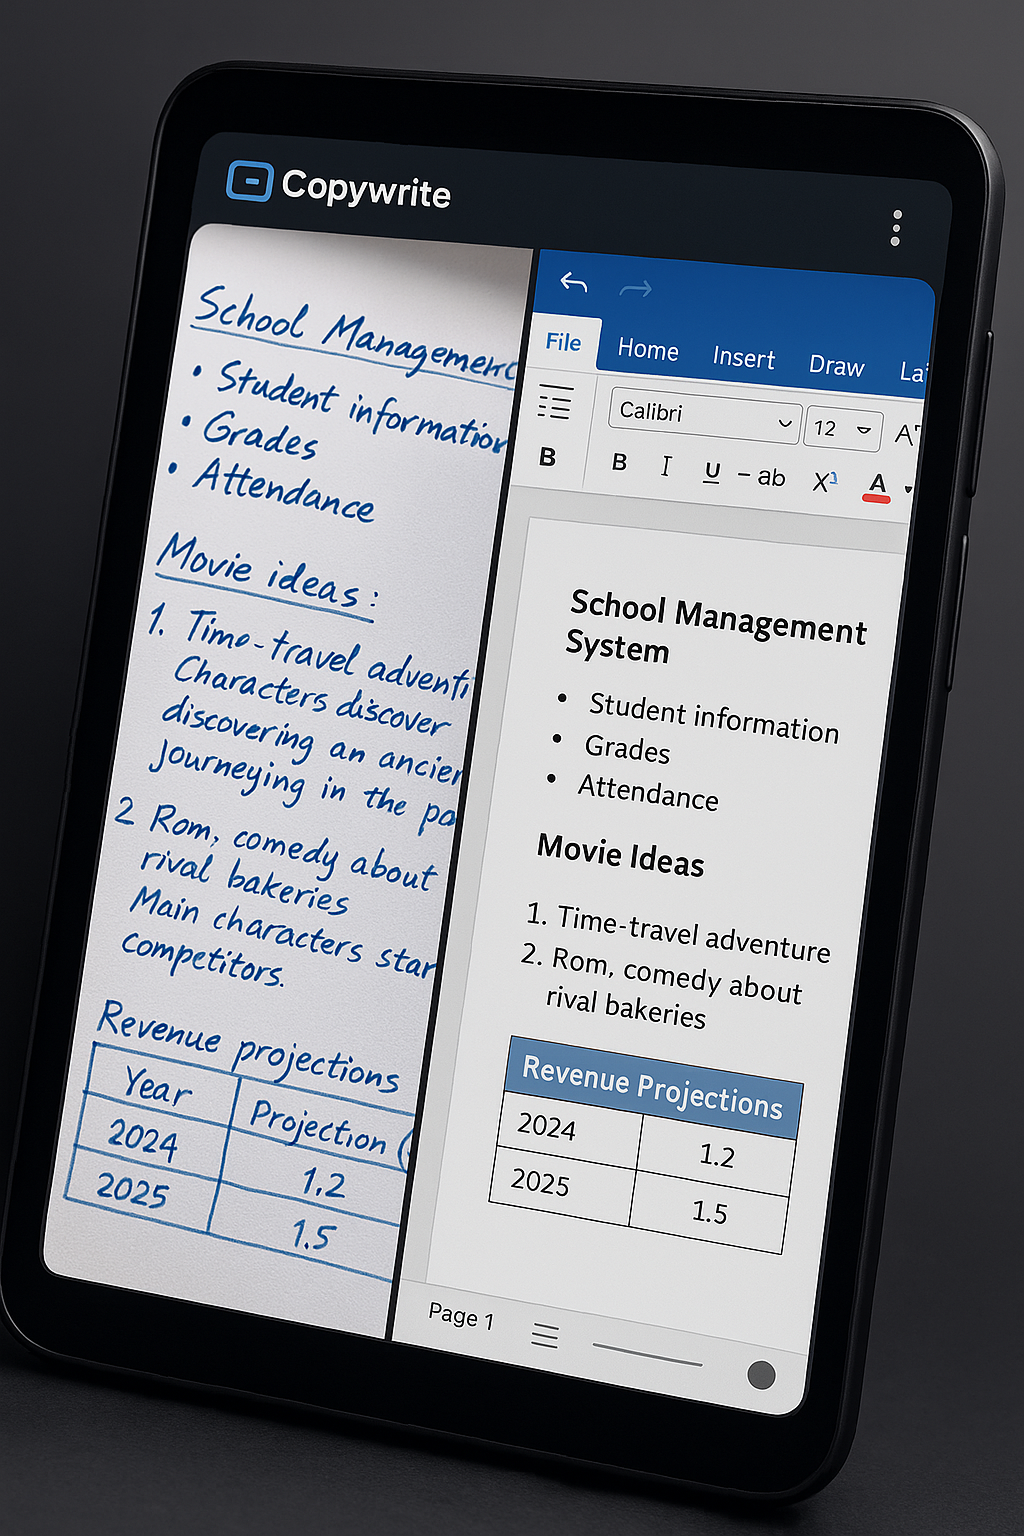 Copywrite
School Management
• Student information
• Grades
• Attendance
Movie ideas:
1. Time-travel adventu
Characters discover
discovering an ancien
Journeying in the pa
2 Rom, comedy about
rival bakeries
Main characters star
competitors.
Revenue projections
Year Projection (
2024 1.2
2025 1.5
File Home Insert Draw La
Calibri 12 A
B B I U ab X A
School Management
System
• Student information
• Grades
• Attendance
Movie Ideas
1. Time-travel adventure
2. Rom, comedy about
rival bakeries
Revenue Projections
2024 1.2
2025 1.5
Page 1